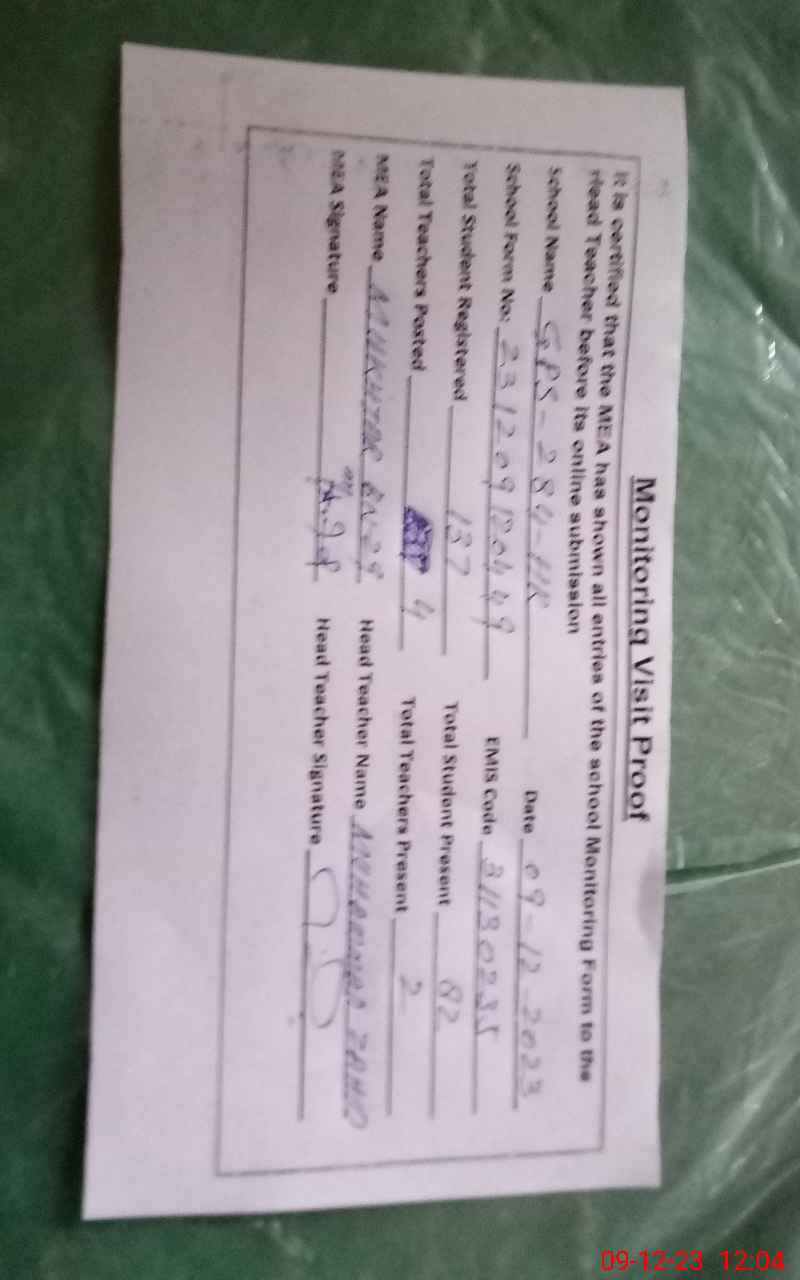 Monitoring Visit Proof
It is certified that the MEA has shown all entries of the school Monitoring Form to the
Head Teacher before its online submission
School Name GPS-284-HR Date 09-12-2023
School Form No: 231209120449 EMIS Code 31130235
Total Student Registered 137 Total Student Present 82
Total Teachers Posted 4 Total Teachers Present 2
MEA Name Head Teacher Name MUHAMMAD ZAHID
MEA Signature Head Teacher Signature
09-12-23 12:04